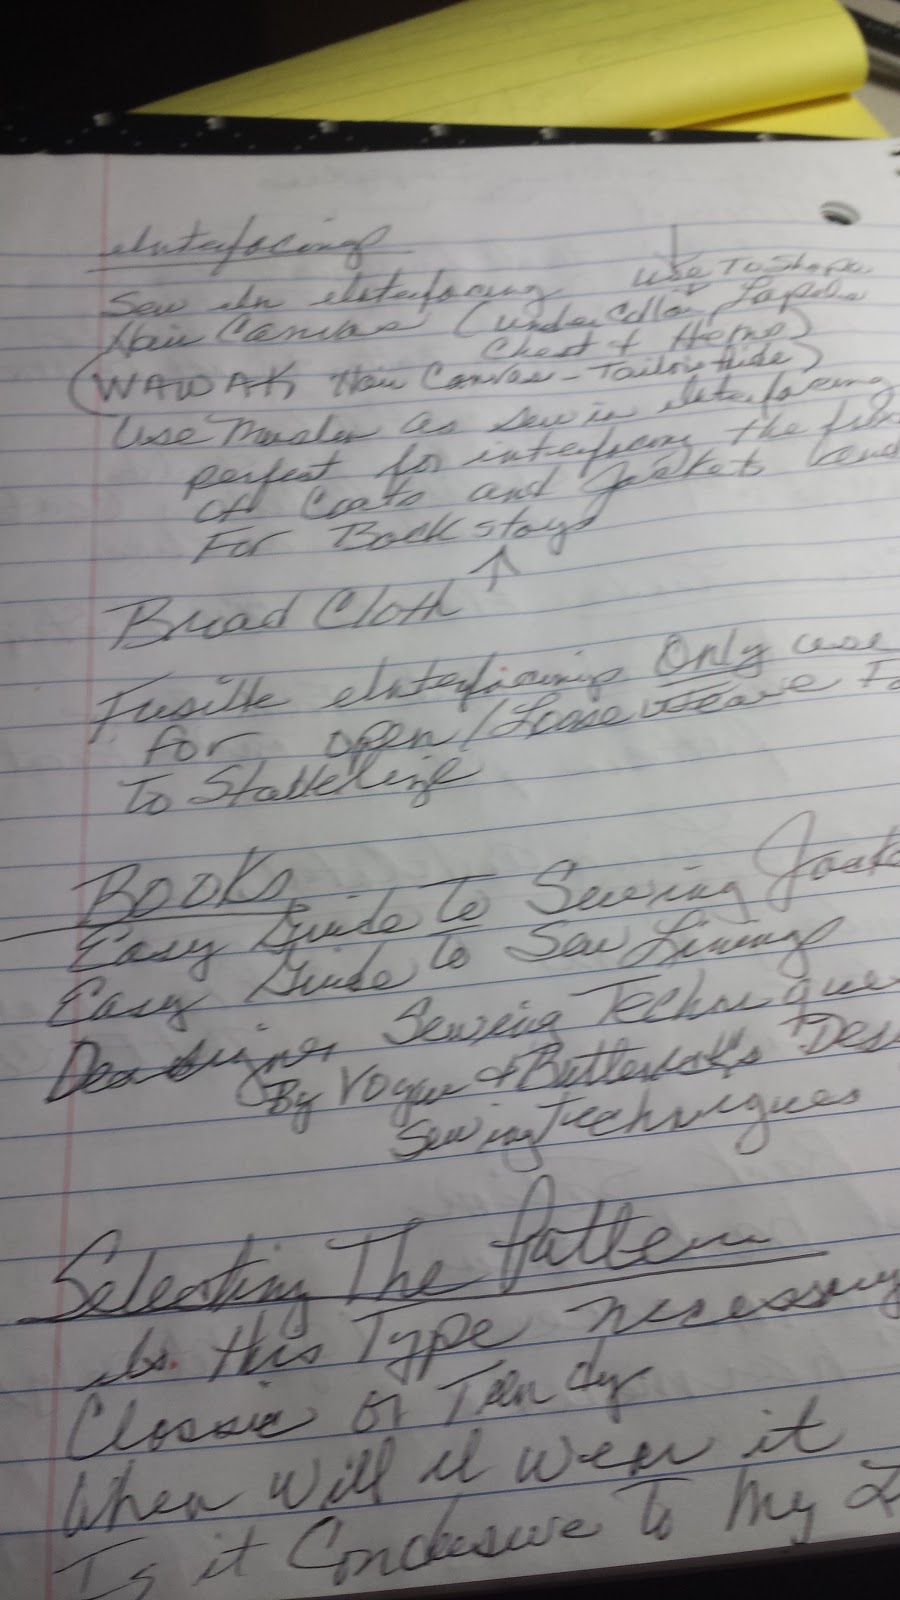 Interfacings
Sew In Interfacing Use To Shape
Hair Canvas (Under Collar, Lapels
Chest & Hems)
(WAWAK Hair Canvas - Tailors Hide)
Use Muslin as sew in interfacing
perfect for interfacing the
of Coats and Jackets
For Back stays
Broad Cloth
Fusible Interfacing Only use
for open/Loose Weave
To Stabelize
BOOKs
Easy Guide to Sewing
Easy Guide to Sew Linings
Designer Sewing Technique
By Vogue & Butterick's
Sewing Techniques
Selecting The Pattern
Is this Type necessary
Classic or Trendy
When Will I wear it
Is it Condusive To My